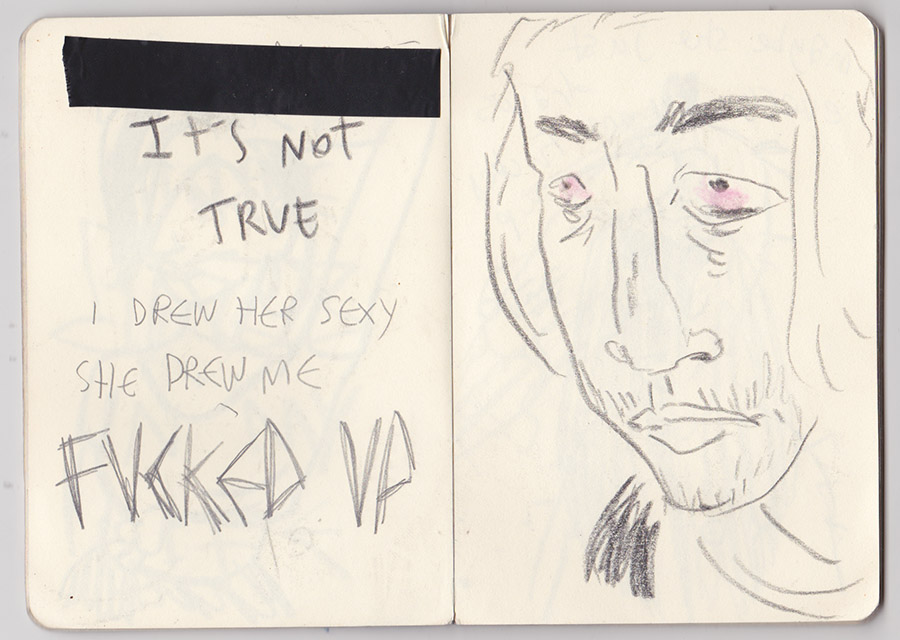 ITS NOT
TRUE
I DREW HER SEXY
SHE DREW ME
FUCKED UP